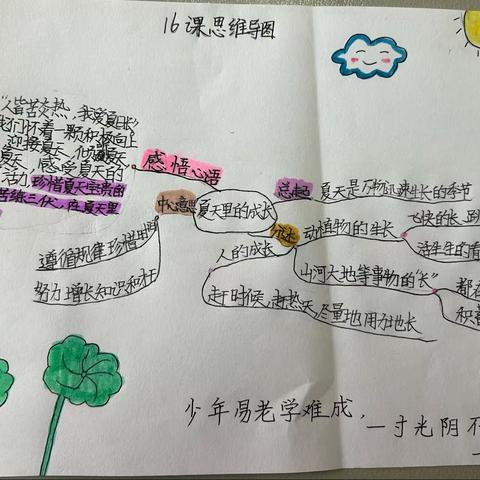 16课思维导图
"人皆苦炎热，我爱夏日长"
我们怀着一颗积极向上
迎接夏天
夏天，感受夏天的
活力，珍惜夏天宝贵的
苦练三伏，在夏天里
感悟心语
中心意思
夏天里的成长
遵循规律珍惜时间
努力增长知识和才干
总起
夏天是万物迅速生长的季节
分述
动植物的生长
飞快的长，跳
活生生的看
山河大地等事物的"长"
都在
积蓄
人的成长
赶时候，赶热天，尽量地用力地长
少年易老学难成，
一寸光阴不